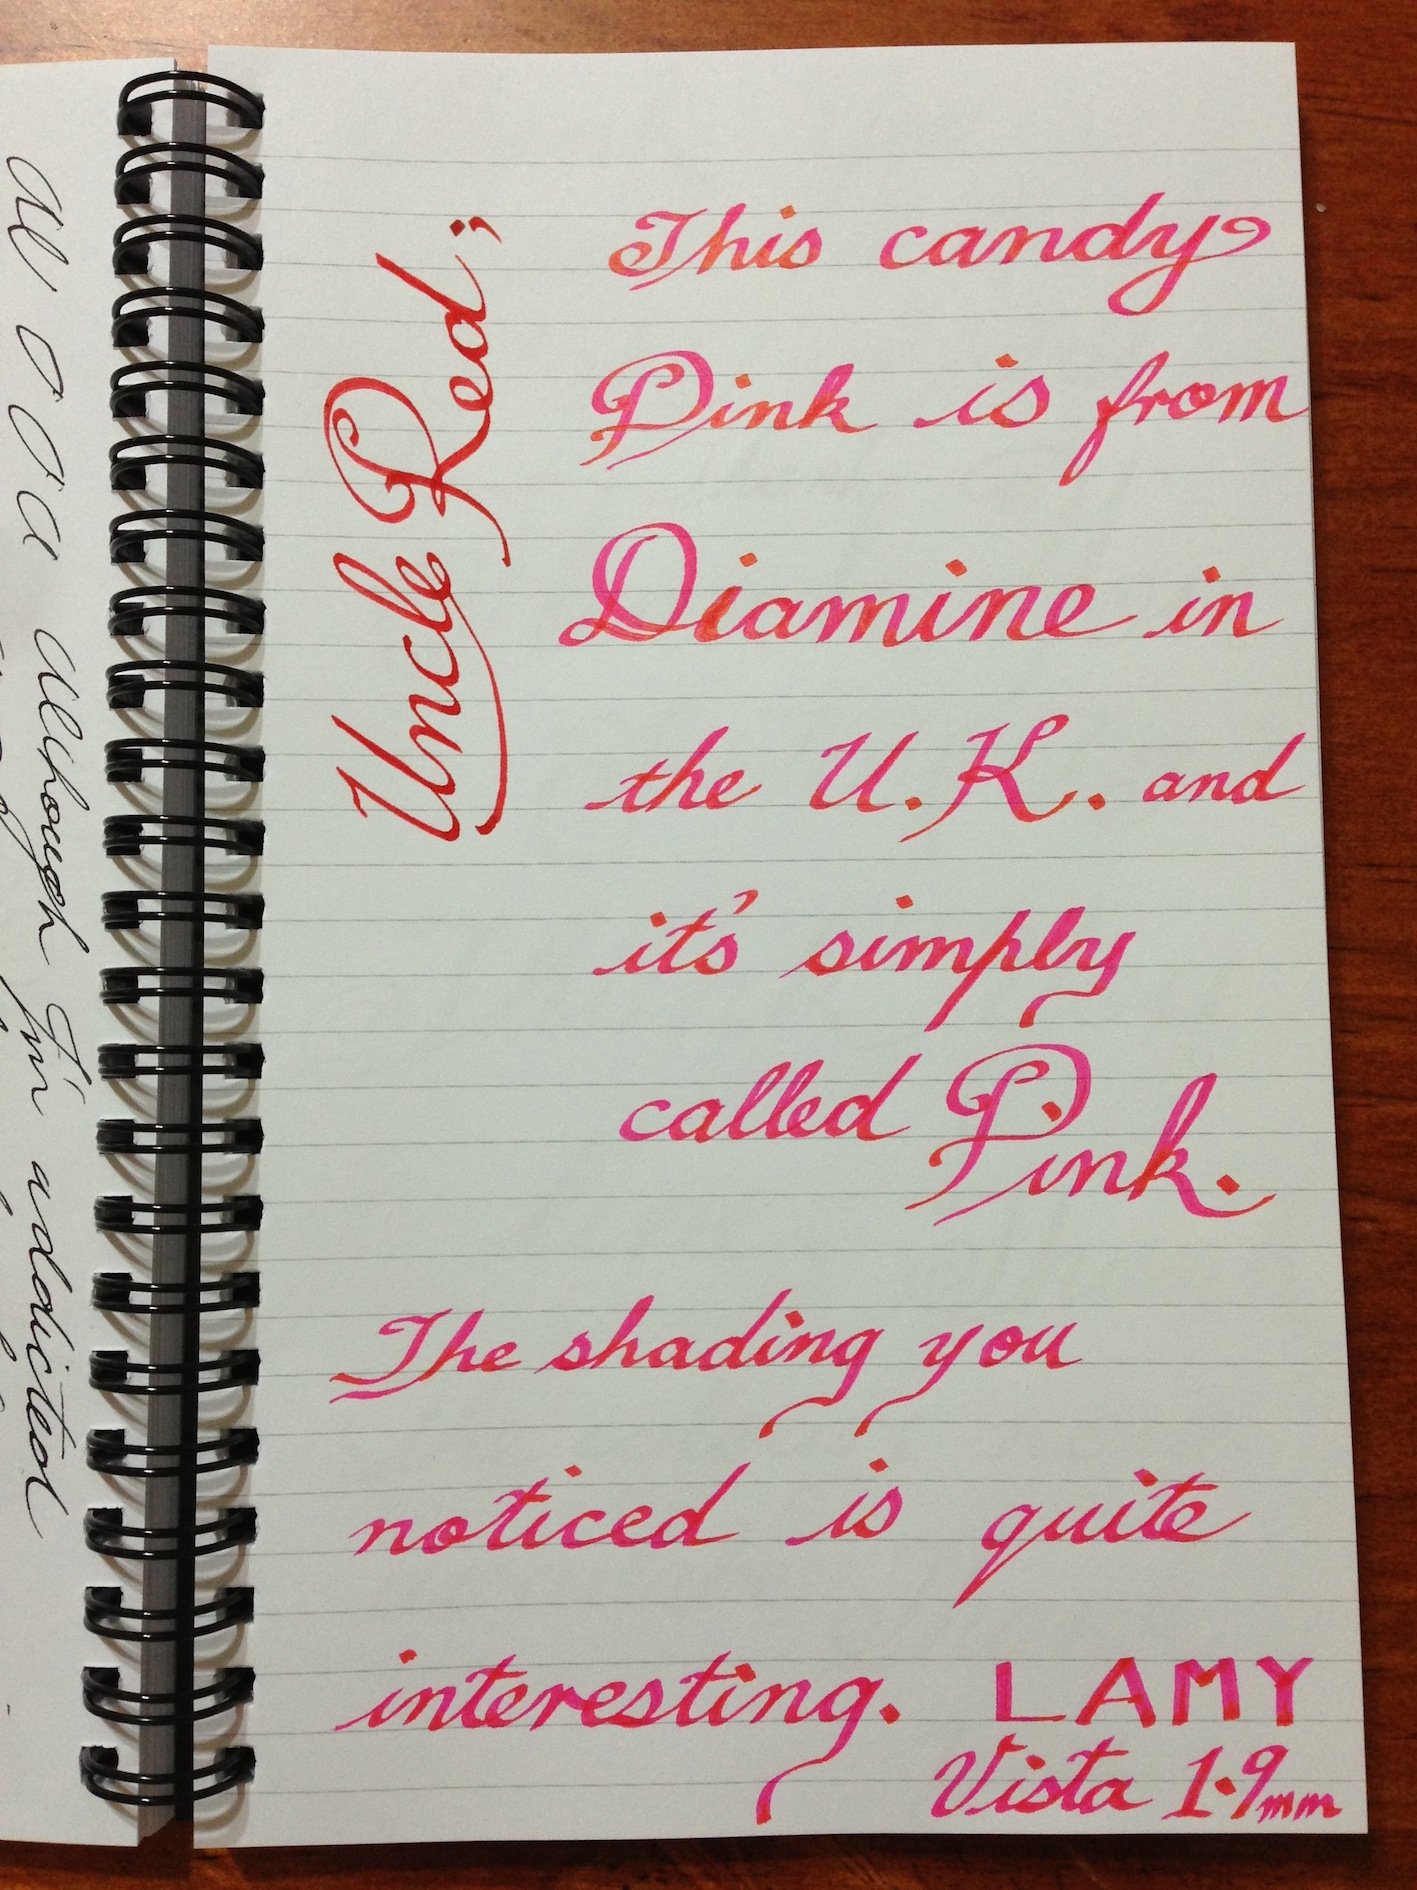 Uncle Red;
This candy
Pink is from
Diamine in
the U.K. and
it's simply
called Pink.
The shading you
noticed is quite
interesting. LAMY
Vista 1.9mm
Although I'm addicted